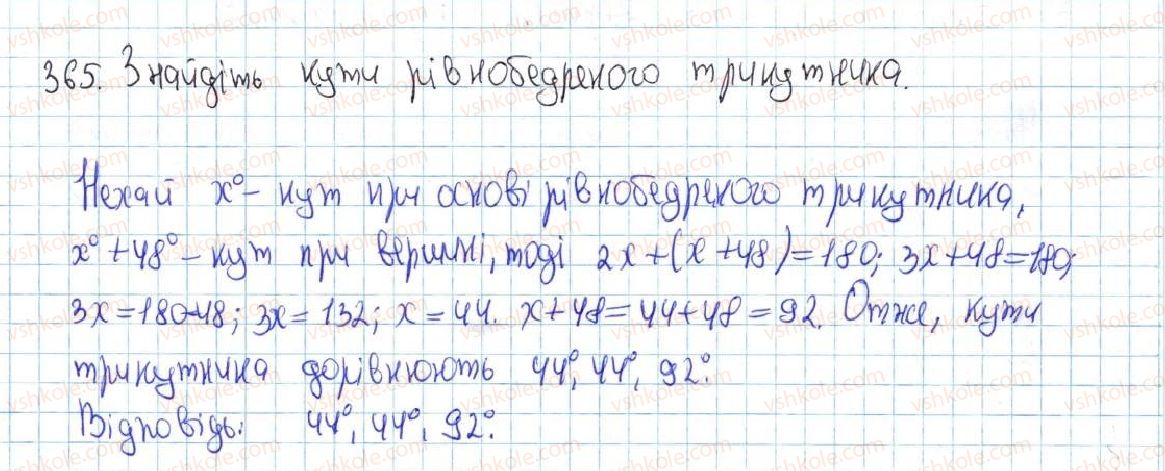 365. Знайдіть кути рівнобедреного трикутника.
Нехай x° – кут при основі рівнобедреного трикутника,
x° + 48° – кут при вершині, тоді 2x + (x + 48) = 180; 3x + 48 = 180;
3x = 180 - 48; 3x = 132; x = 44. x + 48 = 44 + 48 = 92. Отже, кути
трикутника дорівнюють 44°, 44°, 92°.
Відповідь: 44°, 44°, 92°.